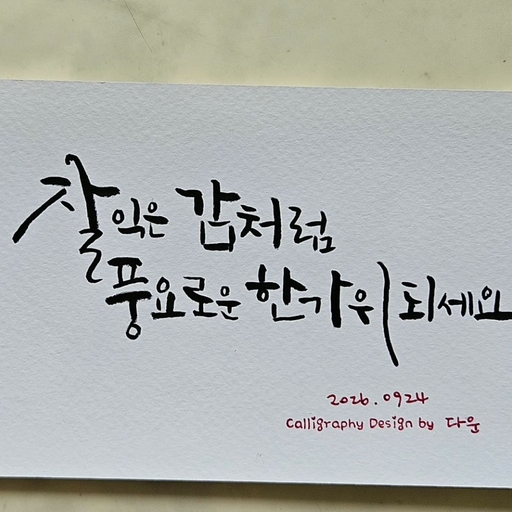 잘 익은 감처럼
풍요로운 한가위 되세요
2026.0924
Calligraphy Design by 다운